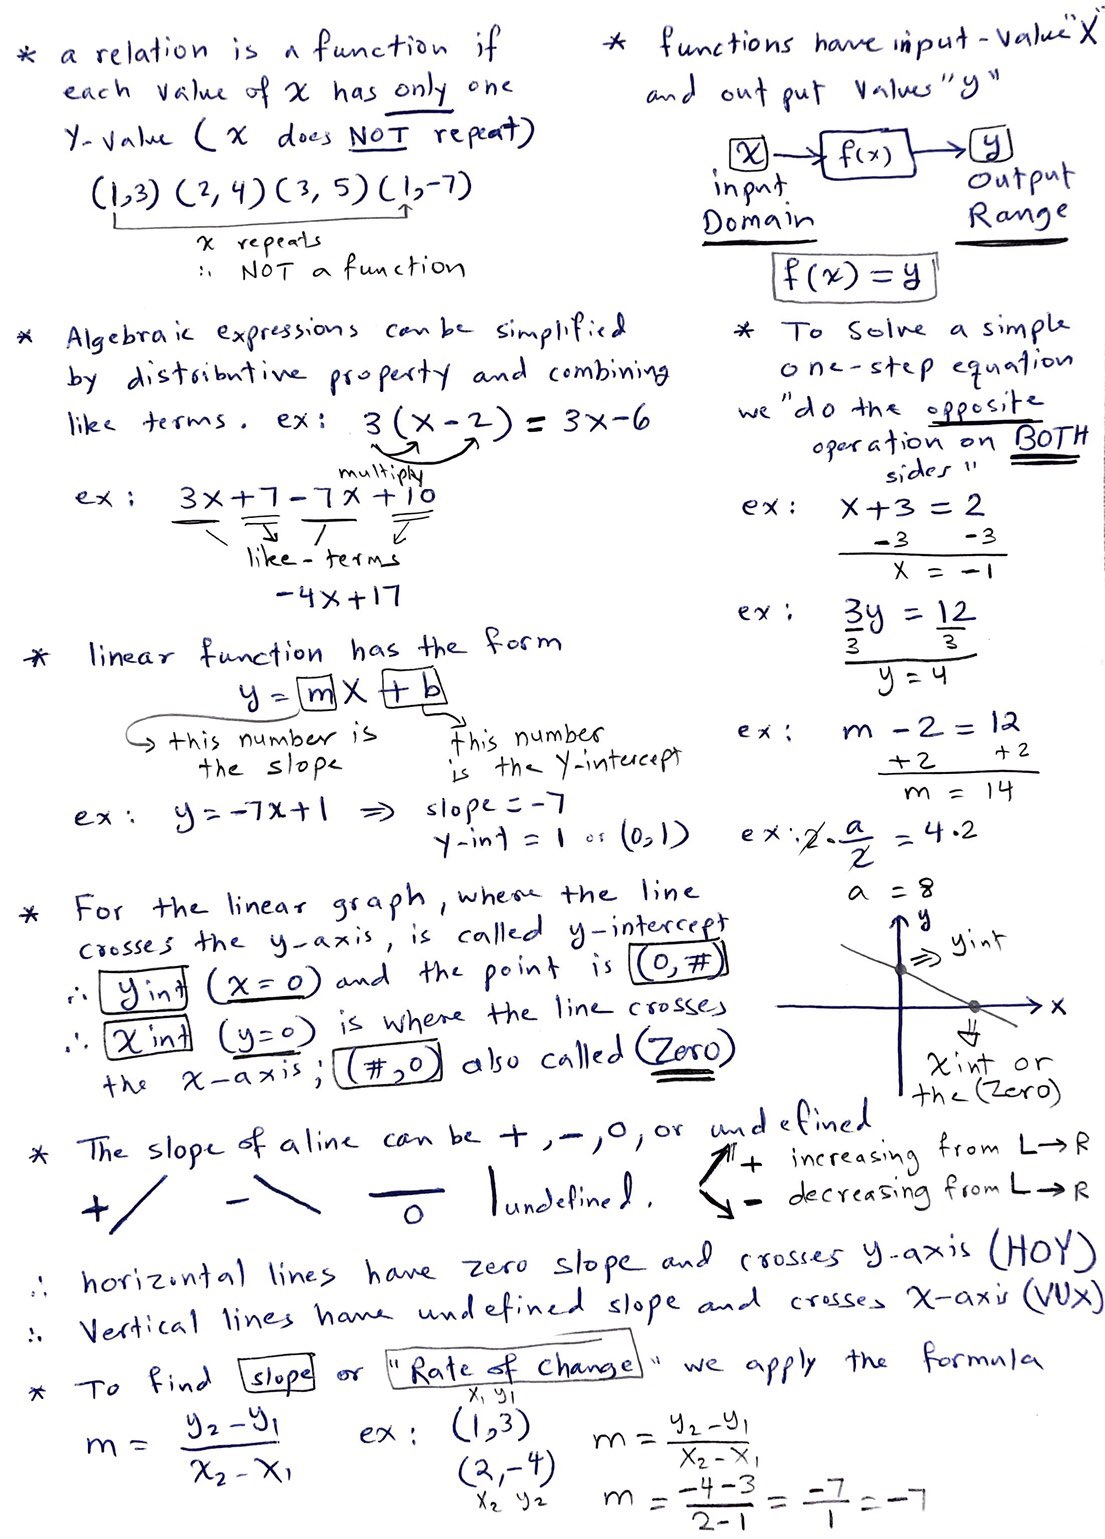 * a relation is a function if
each value of x has only one
y-value ( x does NOT repeat)
(1,3) (2, 4) (3, 5) (1,-7)
x repeats
∴ NOT a function
* functions have input-value "X"
and out put values "y"
x → f(x) → y
input output
Domain Range
f(x) = y
* Algebraic expressions can be simplified
by distributive property and combining
like terms. ex: 3(x-2) = 3x-6
multiply
ex: 3x+7-7x+10
like-terms
-4x+17
* To solve a simple
one-step equation
we "do the opposite
operation on BOTH
sides"
ex: x+3 = 2
-3 -3
x = -1
ex: 3y = 12
3 3
y = 4
ex: m - 2 = 12
+2 +2
m = 14
ex: 2 · a/2 = 4·2
a = 8
* linear function has the form
y = m x + b
this number is
the slope
this number
is the y-intercept
ex: y = -7x+1 ⇒ slope = -7
y-int = 1 or (0,1)
* For the linear graph, where the line
crosses the y-axis, is called y-intercept
∴ y int (x = 0) and the point is (0, #)
∴ x int (y=0) is where the line crosses
the x-axis; (#,0) also called (Zero)
y
⇒ yint
x
⇓
xint or
the (Zero)
* The slope of a line can be +, -, 0, or undefined
+ - 0 undefined.
+ increasing from L→R
- decreasing from L→R
∴ horizontal lines have zero slope and crosses y-axis (HOY)
∴ Vertical lines have undefined slope and crosses x-axis (VUX)
* To find slope or "Rate of change" we apply the formula
m = y₂-y₁ / x₂-x₁
ex: x₁ y₁
(1,3)
(2,-4)
x₂ y₂
m = y₂-y₁ / x₂-x₁
m = -4-3 / 2-1 = -7/1 = -7